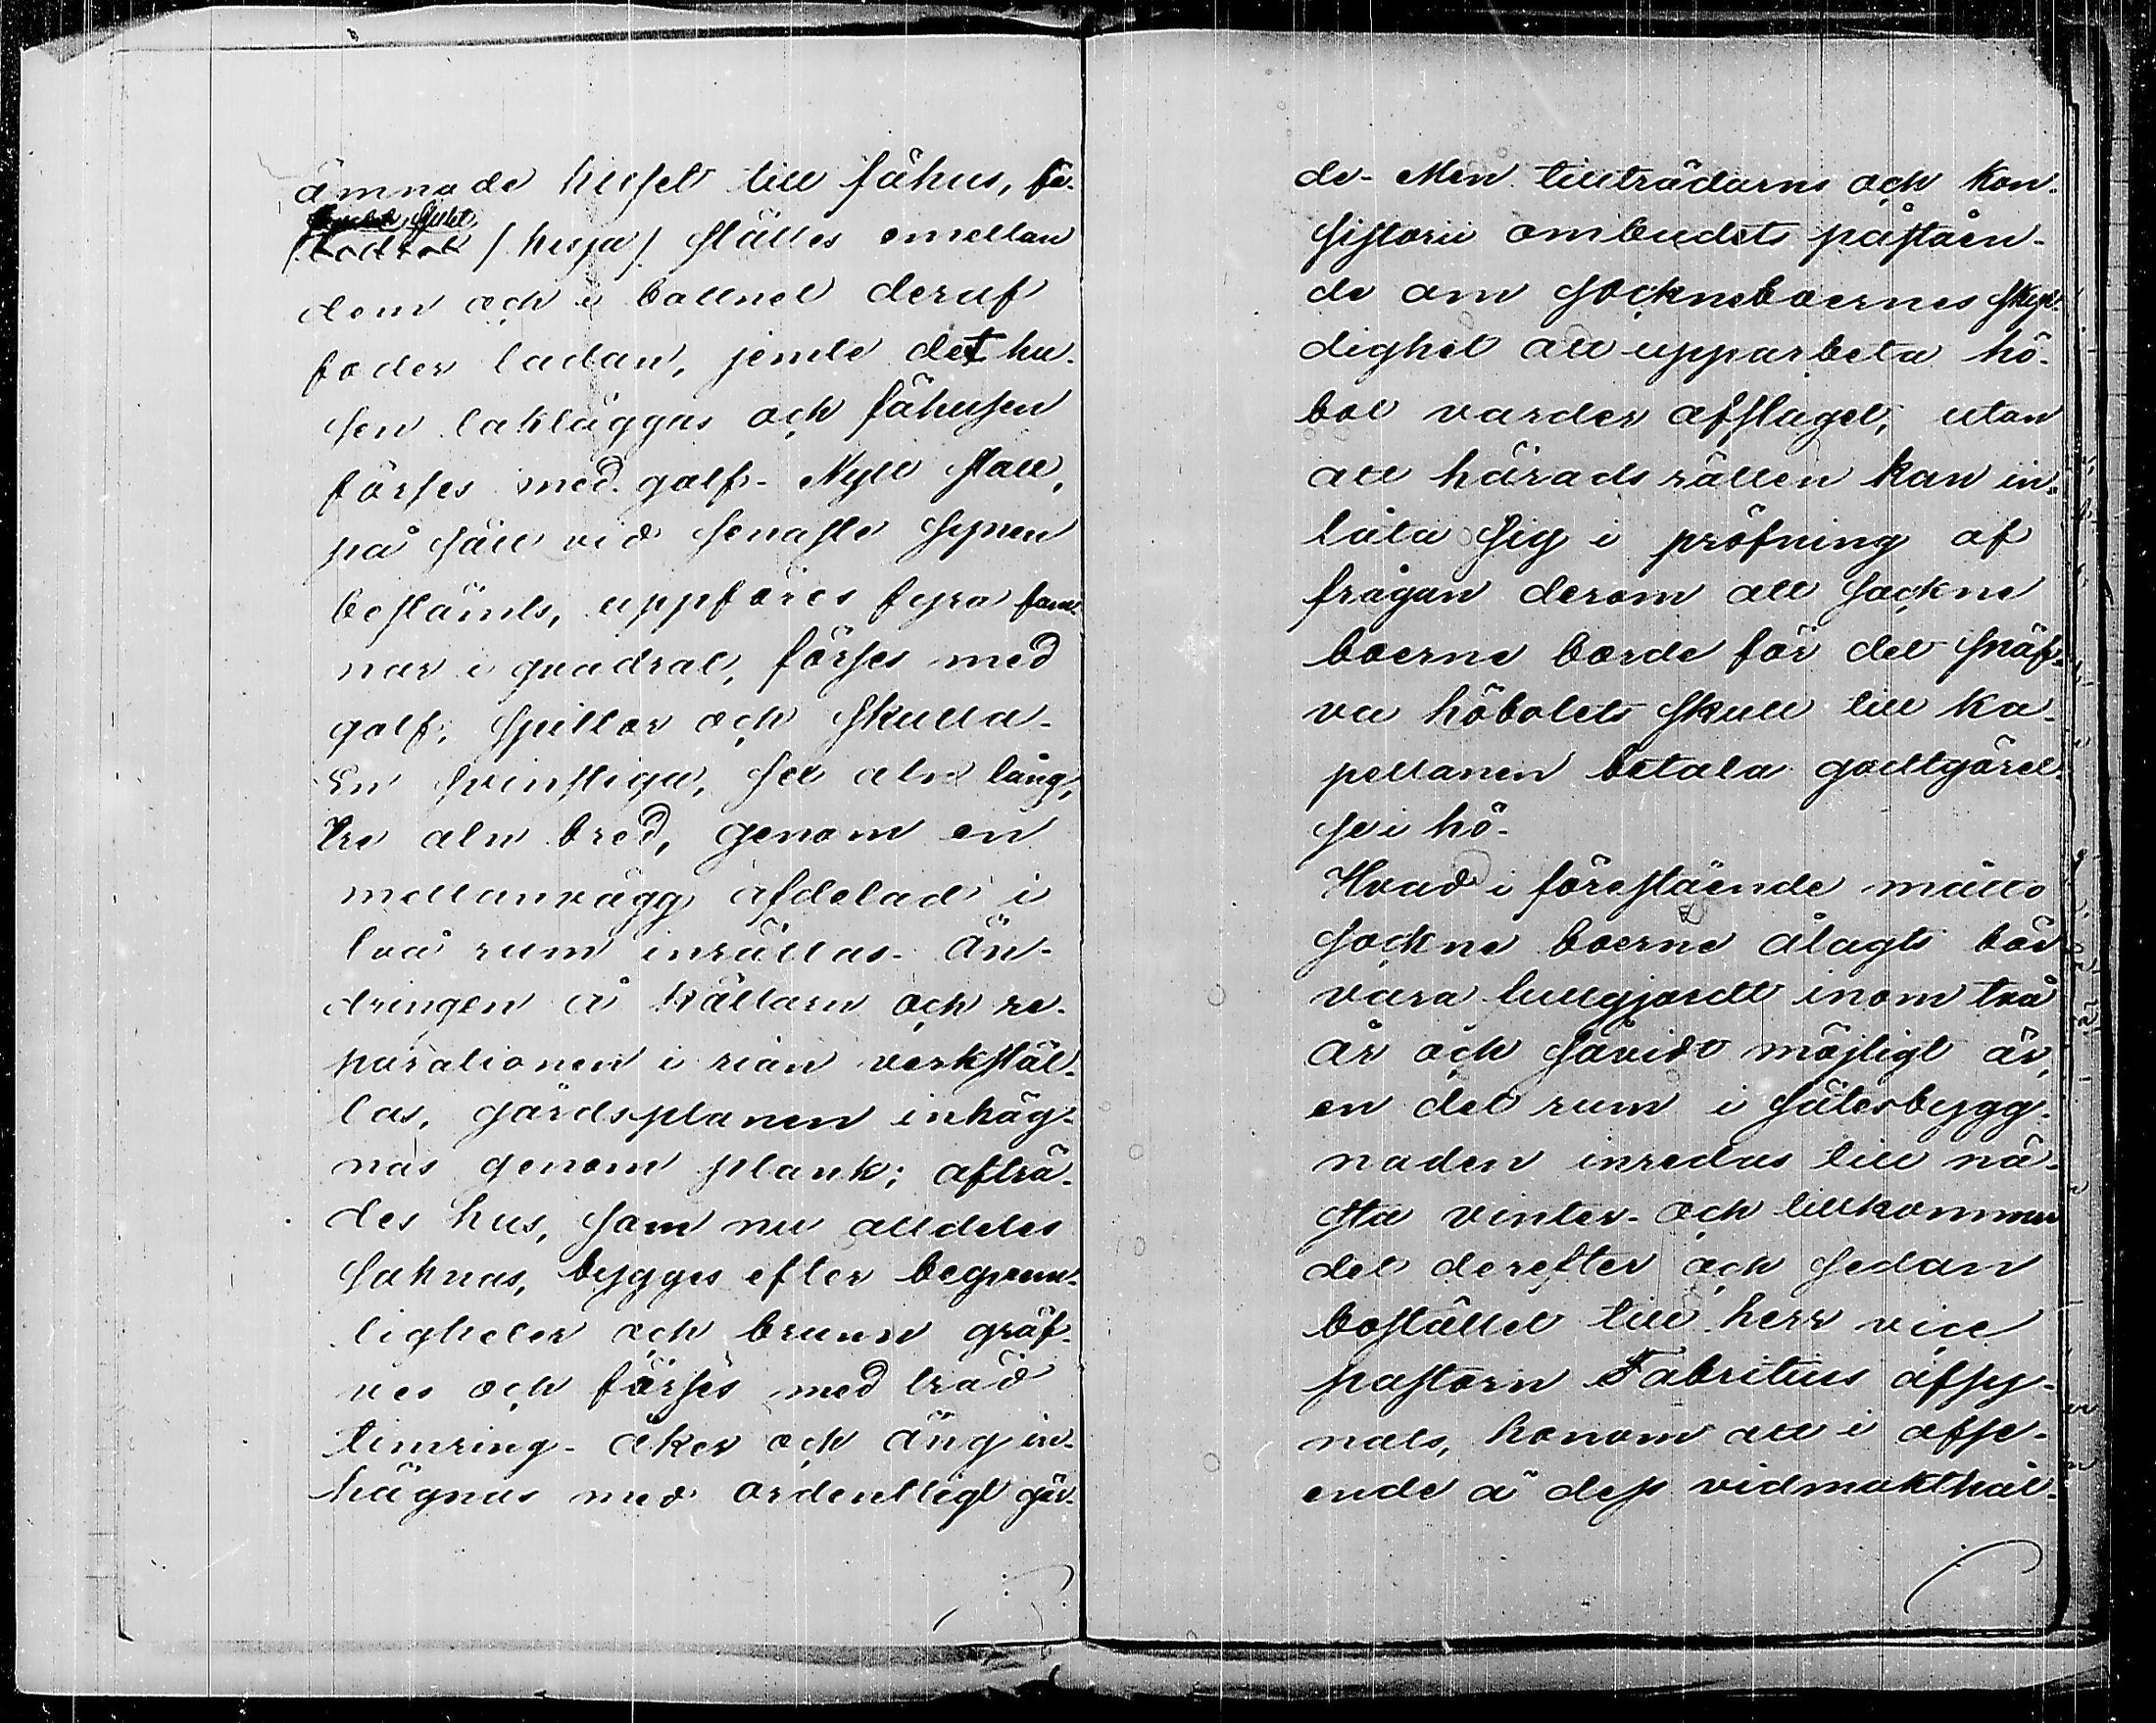 ämnade huset till fähus, fä-
skjulet
/ hespa / ställes emellan
dem och i bottnet deruf
foder ladan, jemte det hu-
sen taktäggas och fähusen
förses med golf. Nytt stall,
på sätt vid senaste synen
bestämts, uppföres fyra fam-
nar i quadrat, förses med
golf, spiltor och skulla.
En svinstiga, sex aln lång,
tre aln bred, genom en
mellanvägg afdelad i
två rum inrättas. Än-
dringen å källarn och re-
parationen i rian verkstäl-
las, gårdsplanen inhäg-
nas genom plank; afträ-
des hus, som nu alldeles
saknas, bygges efter beqväm-
ligheter och brunn gräf-
ves och förses med träd
timring. åker och äng in-
hägnas med ordentligt gär-
de. Men tillträdarns och Kon-
sistorii ombudets påståen-
de om sockneboernes skyl-
dighet att upparbeta hö-
bol varder afslaget, utan
att häradsrätten kan in-
låta sig i pröfning af
frågan derom att sockne
boerne borde för det snäf-
va höbolets skull till Ka-
pellanen betala godtgörel-
se i hö.
Hvad i förestående måtto
sockne boerne ålagts bör
vara fullgjordt inom två
år och såvidt möjligt är,
en del rum i sätesbygg-
naden inredas till nä-
sta vinter. och tillkommer
det derefter och sedan
bostället till herr vice
pastorn Fabritius afsy-
nats, honom att i afse-
ende å dess vidmakthål-